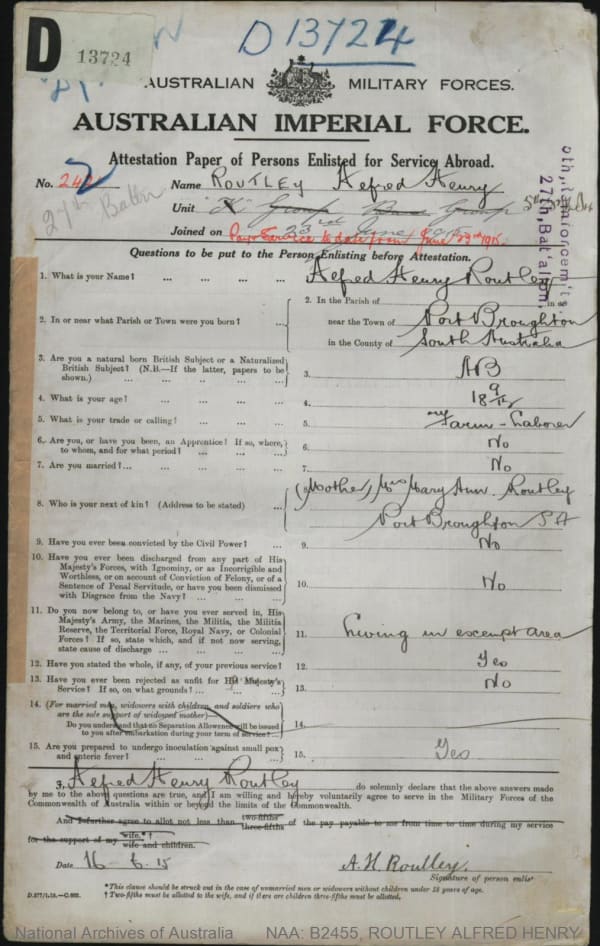 D 13724
D
13724
AUSTRALIAN MILITARY FORCES.
AUSTRALIAN IMPERIAL FORCE.
Attestation Paper of Persons Enlisted for Service Abroad.
No. 242
Name ROUTLEY Alfred Henry
27th Battn
Unit "K" Group
Joined on 23rd June 1915
Pay & Service to date from June 23rd 1915.
27th Bat'alion.
Questions to be put to the Person Enlisting before Attestation.
1. What is your Name? ... ... ... ... Alfred Henry Routley
2. In or near what Parish or Town were you born? ...
2. In the Parish of in or
near the Town of Port Broughton
in the County of South Australia
3. Are you a natural born British Subject or a Naturalized
British Subject? (N.B.—If the latter, papers to be
shown.) ... ... ... ... ...
3. NB
4. What is your age? ... ... ... ...
4. 18 9/12
5. What is your trade or calling? ... ... ...
5. Farm-Laborer
6. Are you, or have you been, an Apprentice? If so, where,
to whom, and for what period? ... ... ...
6. No
7. Are you married? ... ... ... ... ...
7. No
8. Who is your next of kin? (Address to be stated) ...
8. (Mother) Mrs Mary Ann Routley
Port Broughton S A
9. Have you ever been convicted by the Civil Power? ...
9. No
10. Have you ever been discharged from any part of His
Majesty's Forces, with Ignominy, or as Incorrigible and
Worthless, or on account of Conviction of Felony, or of a
Sentence of Penal Servitude, or have you been dismissed
with Disgrace from the Navy? ... ... ...
10. No
11. Do you now belong to, or have you ever served in, His
Majesty's Army, the Marines, the Militia, the Militia
Reserve, the Territorial Force, Royal Navy, or Colonial
Forces? If so, state which, and if not now serving,
state cause of discharge ... ... ... ...
11. Living in exempt area
12. Have you stated the whole, if any, of your previous service?
12. Yes
13. Have you ever been rejected as unfit for His Majesty's
Service? If so, on what grounds? ... ... ...
13. No
14. (For married men, widowers with children, and soldiers who
are the sole support of widowed mother)—
Do you understand that no Separation Allowance will be issued
to you after embarkation during your term of service? ...
14.
15. Are you prepared to undergo inoculation against small pox
and enteric fever? ... ... ... ...
15. Yes
I, Alfred Henry Routley do solemnly declare that the above answers made
by me to the above questions are true, and I am willing and hereby voluntarily agree to serve in the Military Forces of the
Commonwealth of Australia within or beyond the limits of the Commonwealth.
And I further agree to allot not less than two-fifths three-fifths of the pay payable to me from time to time during my service
for the support of my wife.*† wife and children.
Date 16-6-15
A. H. Routley.
Signature of person enlis
*This clause should be struck out in the case of unmarried men or widowers without children under 18 years of age.
†Two-fifths must be allotted to the wife, and if there are children three-fifths must be allotted.
National Archives of Australia
NAA: B2455, ROUTLEY ALFRED HENRY